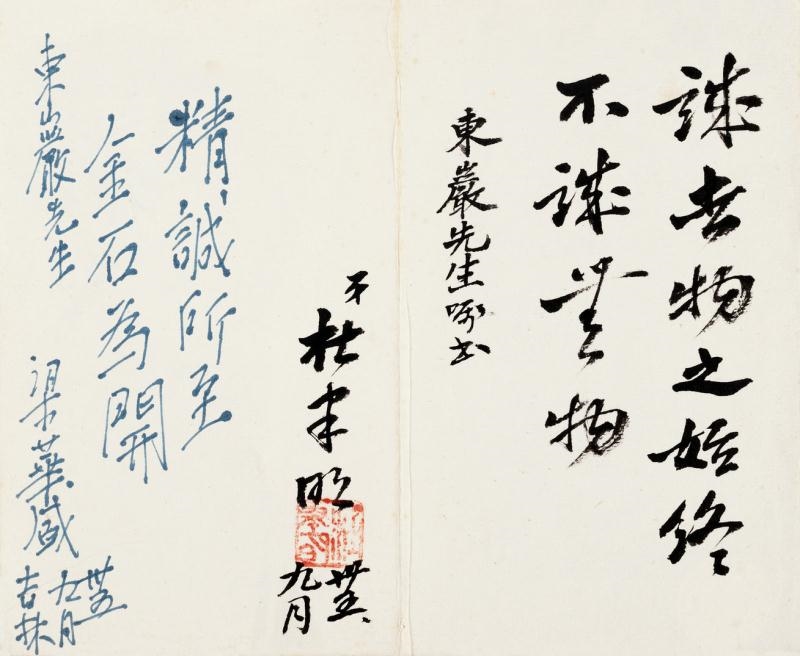 誠者物之始終
不誠無物
東巖先生囑書
弟
杜聿明
卅五、
九月
精誠所至
金石為開
東巖先生
梁華盛
卅五
九月
吉林